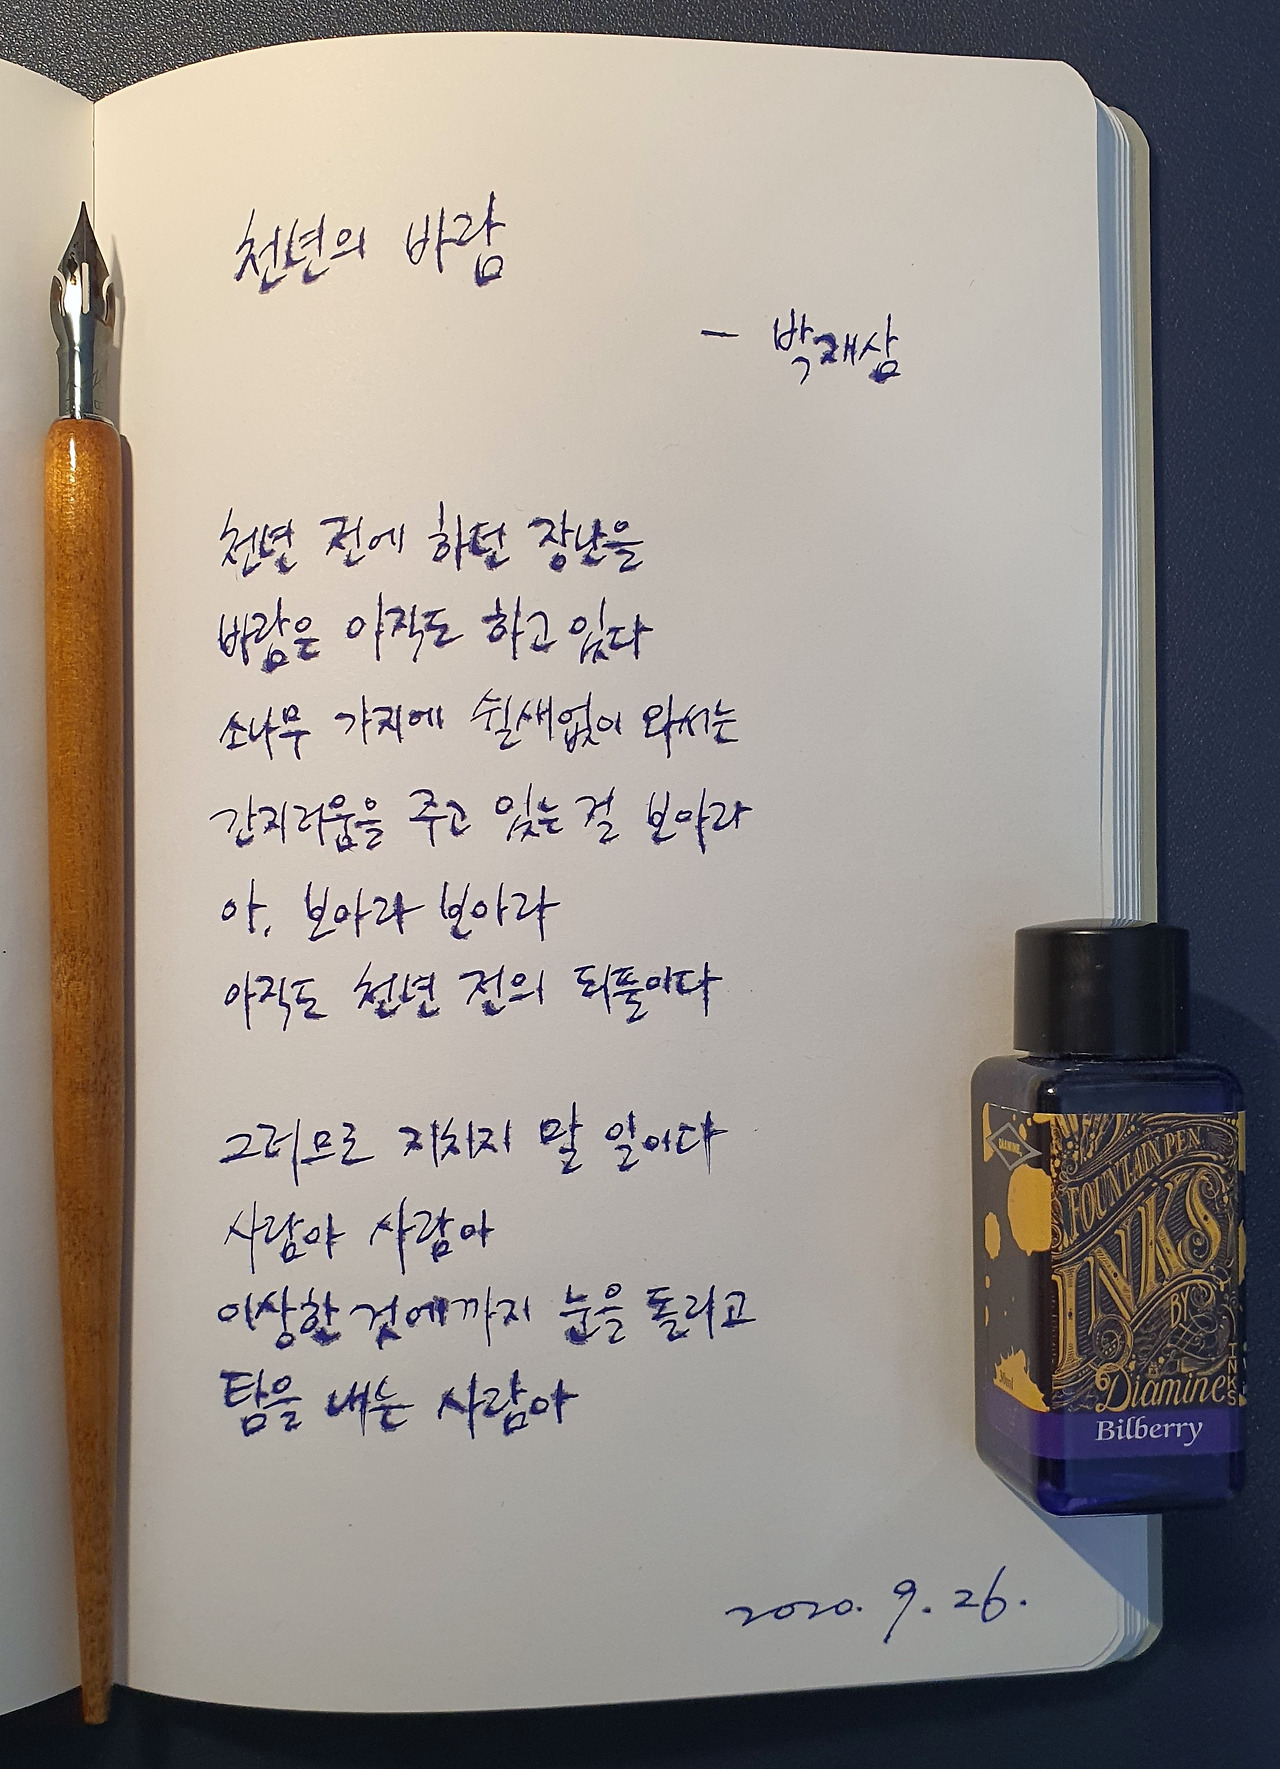 천년의 바람
- 박재삼
천년 전에 하던 장난을
바람은 아직도 하고 있다
소나무 가지에 쉴새없이 와서는
간지러움을 주고 있는 걸 보아라
아, 보아라 보아라
아직도 천년 전의 되풀이다
그러므로 지치지 말 일이다
사람아 사람아
이상한 것에까지 눈을 돌리고
탐을 내는 사람아
2020. 9. 26.
DIAMINE
FOUNTAIN PEN
INKS
BY
Diamine
INKS
30ml
Bilberry